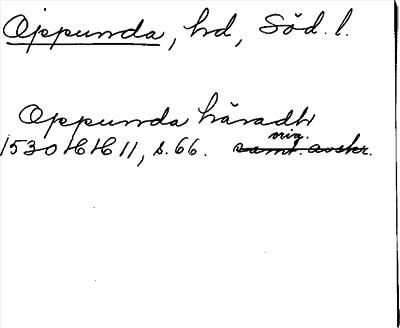 Oppunda, hd, Söd. l.
Oppunda häradh
orig.
1530 HH 11, s. 66. samt. avskr.